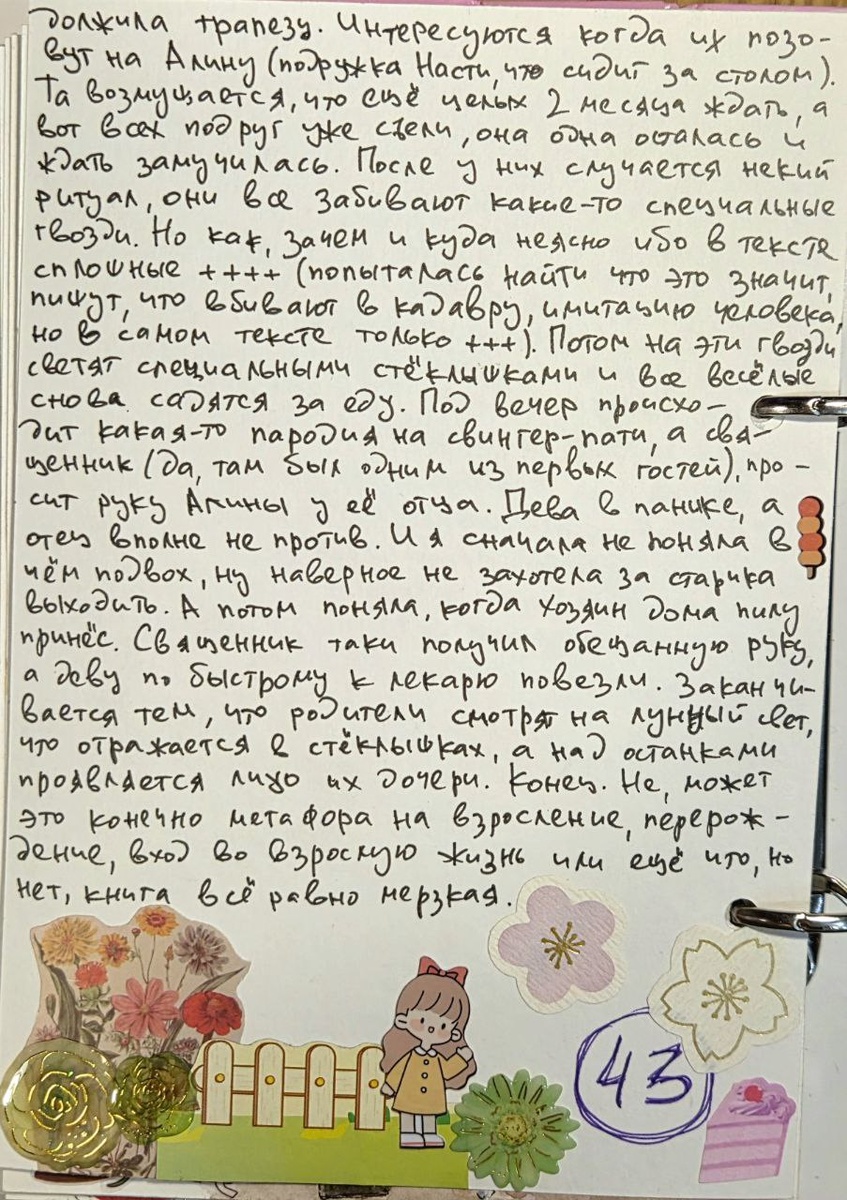 должила трапезу. Интересуются когда их позо-
вут на Алину (подружка Насти, что сидит за столом).
Та возмущается, что ещё целых 2 месяца ждать, а
вот всех подруг уже съели, она одна осталась и
ждать замучилась. После у них случается некий
ритуал, они все забивают какие-то специальные
гвозди. Но как, зачем и куда неясно ибо в тексте
сплошные ++++ (попыталась найти что это значит,
пишут, что вбивают в кадавру, имитацию человека,
но в самом тексте только +++). Потом на эти гвозди
светят специальными стёклышками и все весёлые
снова садятся за еду. Под вечер происхо-
дит какая-то пародия на свингер-пати, а свя-
щенник (да, там был одним из первых гостей), про-
сит руку Алины у её отца. Дева в панике, а
отец вполне не против. И я сначала не поняла в
чём подвох, ну наверное не захотела за старика
выходить. А потом поняла, когда хозяин дома пилу
принёс. Священник таки получил обещанную руку,
а деву по быстрому к лекарю повезли. Заканчи-
вается тем, что родители смотрят на лунный свет,
что отражается в стёклышках, а над останками
проявляется лицо их дочери. Конец. Не, может
это конечно метафора на взросление, перерож-
дение, вход во взрослую жизнь или ещё что, но
нет, книга всё равно мерзкая.
43